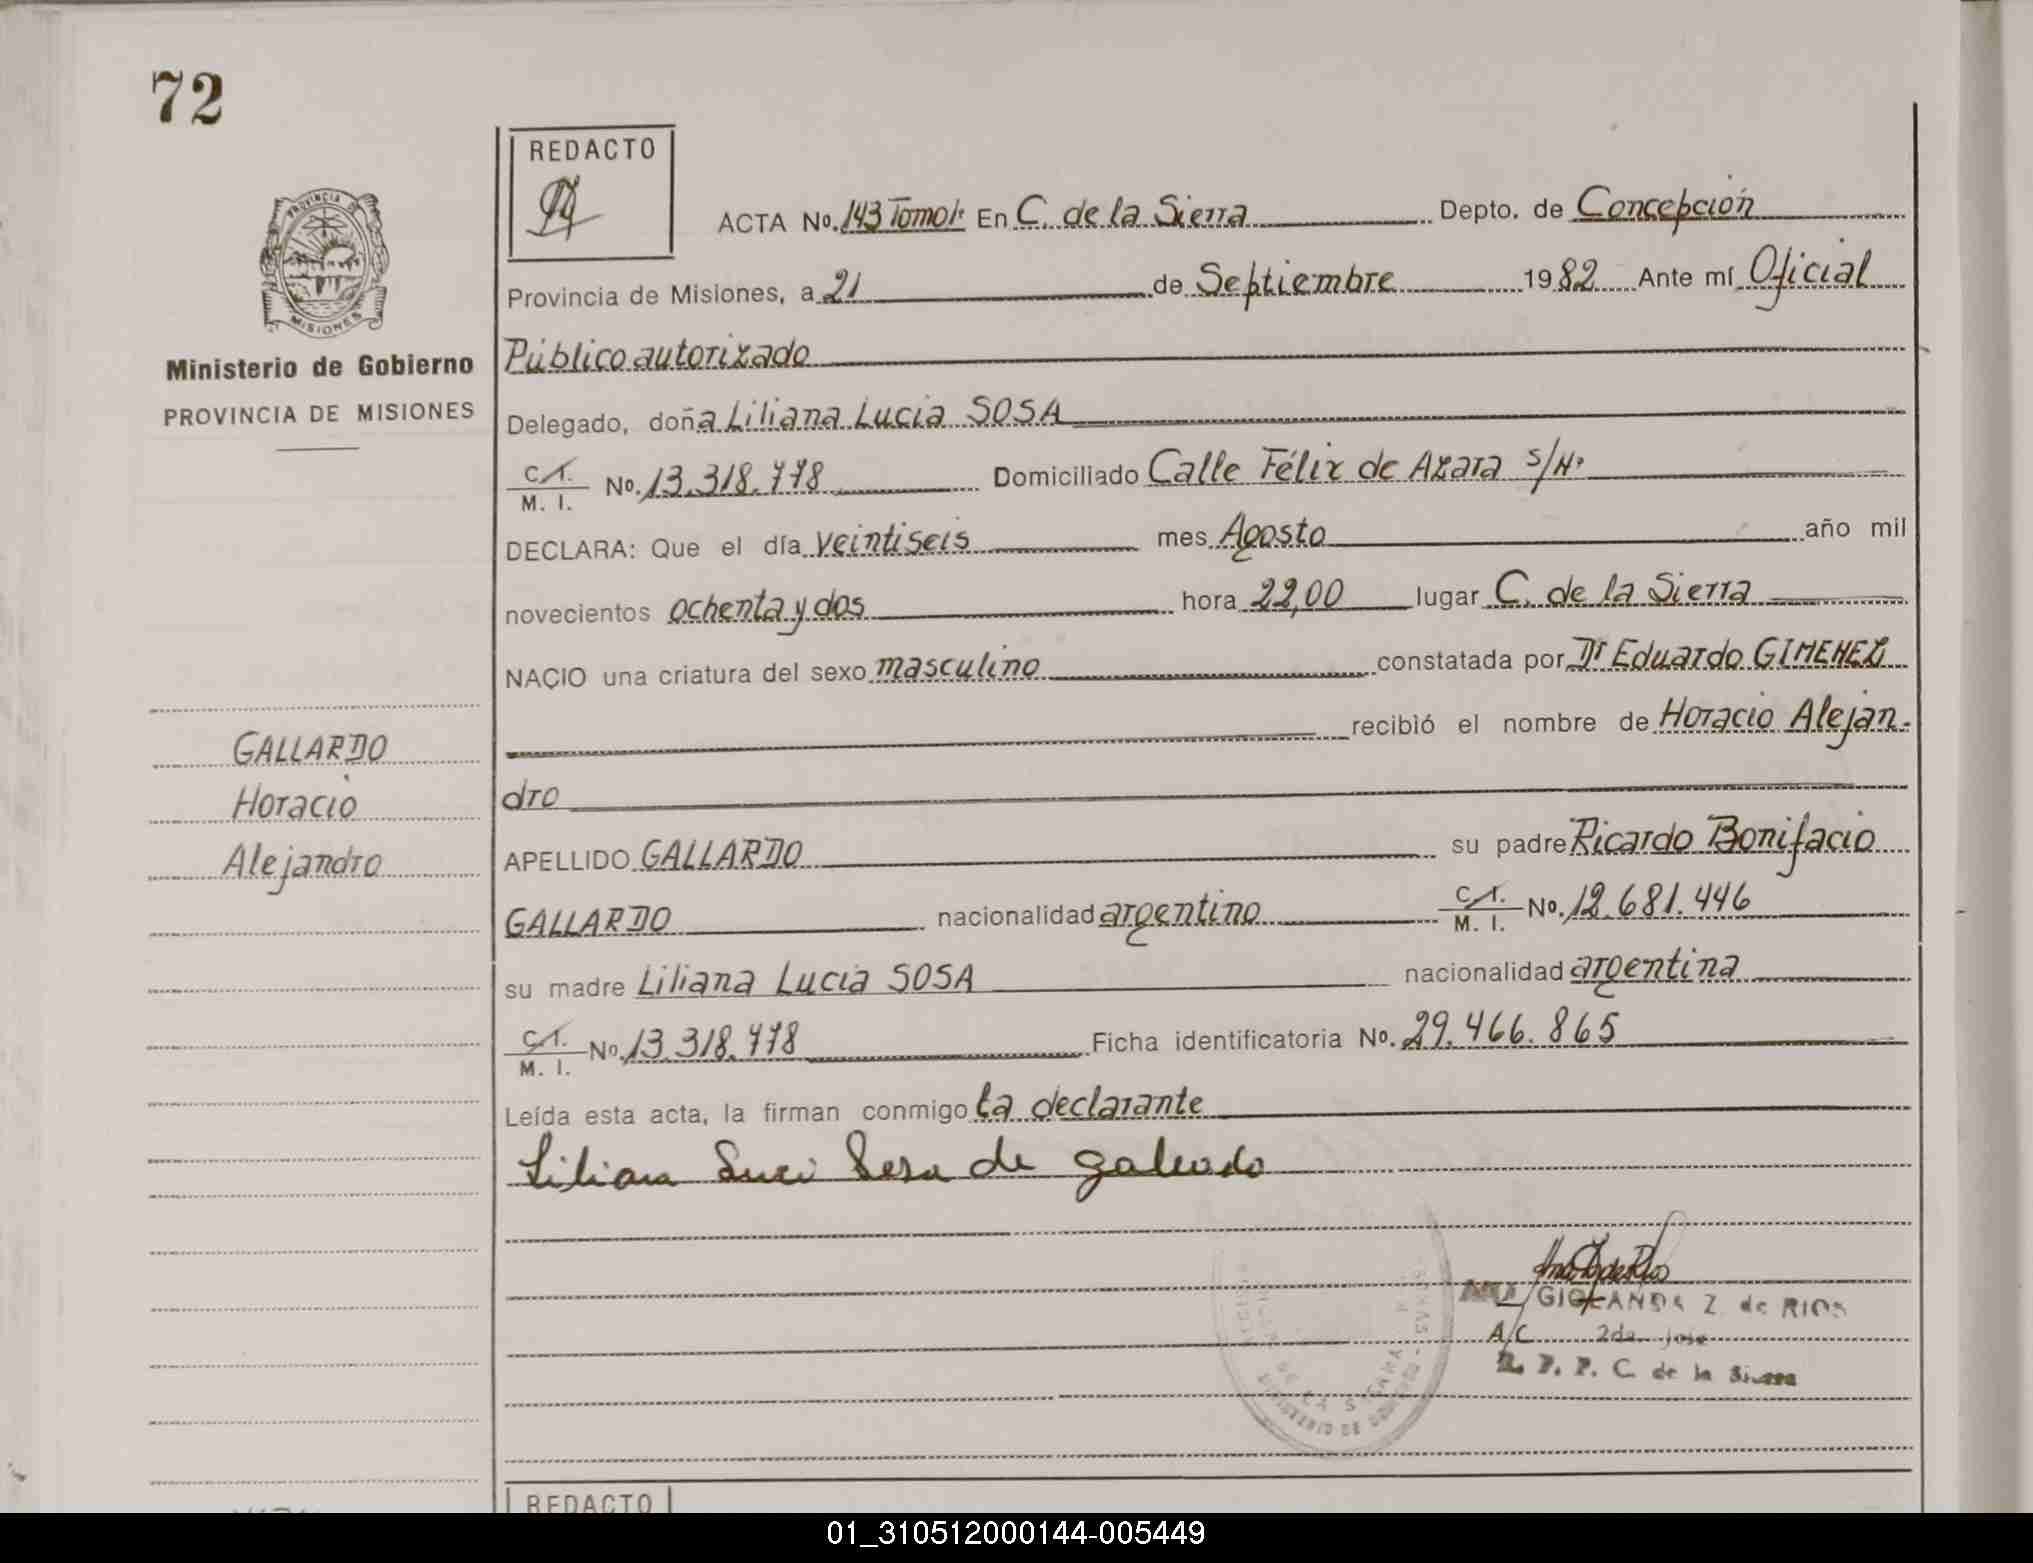 72
REDACTO
PROVINCIA DE
MISIONES
Ministerio de Gobierno
PROVINCIA DE MISIONES
ACTA No. 143 Tomo 1º En C. de la Sierra Depto. de Concepción
Provincia de Misiones, a 21 de Septiembre 1982 Ante mí Oficial
Público autorizado
Delegado, doña Liliana Lucia SOSA
C. I.
M. I. No. 13.318.778 Domiciliado Calle Félix de Azara s/Nº
DECLARA: Que el día veintiseis mes Agosto año mil
novecientos ochenta y dos hora 22,00 lugar C. de la Sierra
NACIO una criatura del sexo masculino constatada por Dr Eduardo GIMENEZ
recibió el nombre de Horacio Alejan-
dro
GALLARDO
Horacio
Alejandro
APELLIDO GALLARDO su padre Ricardo Bonifacio
GALLARDO nacionalidad argentino C. I.
M. I. No. 12.681.446
su madre Liliana Lucia SOSA nacionalidad argentina
C. I.
M. I. No. 13.318.778 Ficha identificatoria No. 29.466.865
Leída esta acta, la firman conmigo la declarante
Liliana Luci Sosa de Gallardo
GIOLANDA Z. de RIOS
A/C 2da. jefe
R. P. P. C. de la Sierra
DE LA SIERRA
REDACTO
01_310512000144-005449